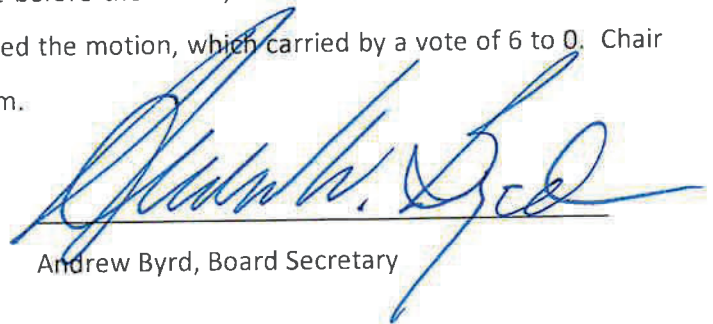 before the
ed the motion, which carried by a vote of 6 to 0. Chair
m.
Andrew W. Byrd
Andrew Byrd, Board Secretary